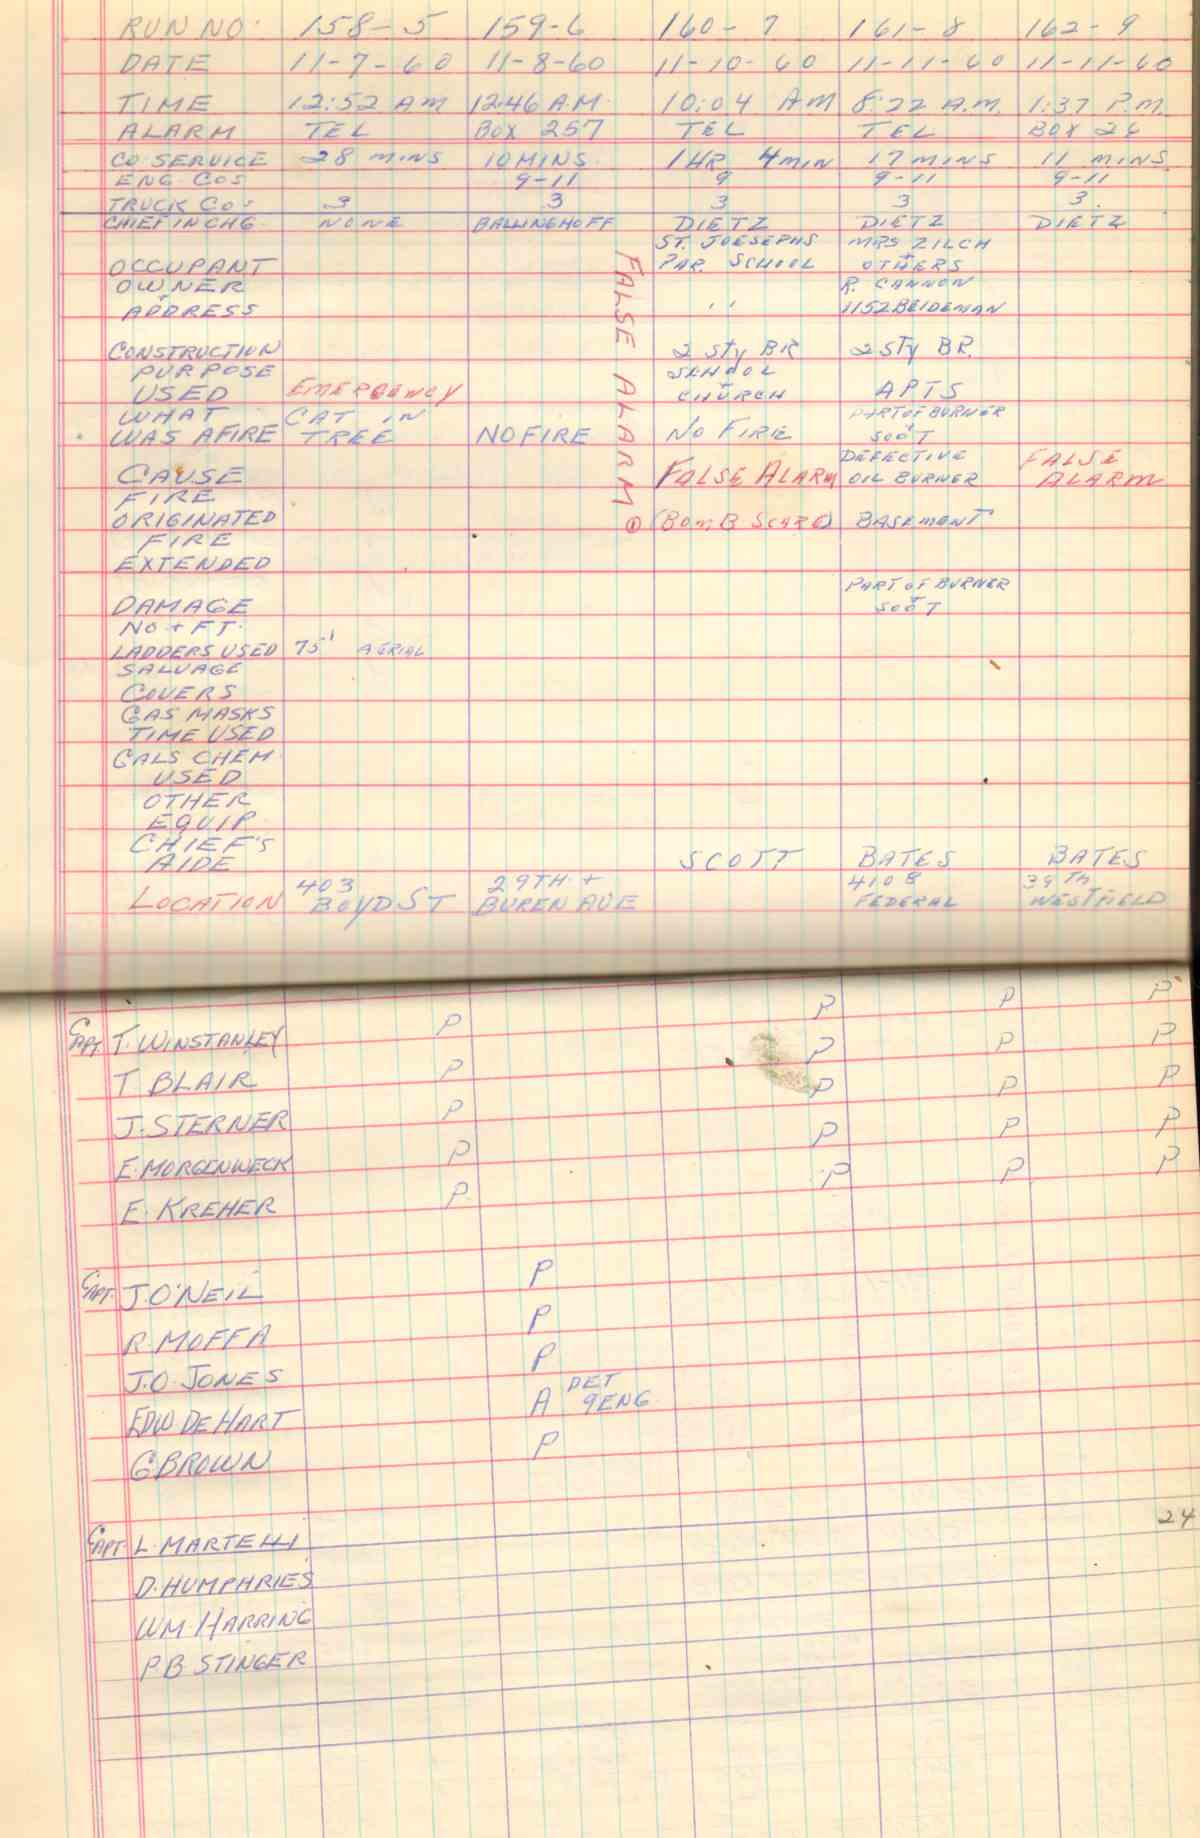 RUN NO. 158-5 159-6 160-7 161-8 162-9
DATE 11-7-60 11-8-60 11-10-60 11-11-60 11-11-60
TIME 12:52 AM 12:46 A.M. 10:04 AM 8:22 A.M. 1:37 P.M.
ALARM TEL BOX 257 TEL TEL BOX 26
CO SERVICE 28 MINS 10 MINS. 1 HR 4 MIN 17 MINS 11 MINS
ENG COS 9-11 9 9-11 9-11
TRUCK COS 3 3 3 3 3.
CHIEF IN CHG. NONE BALLINGHOFF DIETZ DIETZ DIETZ
ST. JOESEPHS MRS ZILCH
+
OCCUPANT PAR. SCHOOL OTHERS
OWNER R. CANNON
+
ADDRESS '' 1152 BEIDEMAN
FALSE ALARM ①
CONSTRUCTION 2 STY BR 2 STY BR.
PURPOSE SCHOOL
+
USED EMERGENCY CHURCH APTS
WHAT CAT IN PART OF BURNER
+
WAS AFIRE TREE NO FIRE NO FIRE SOOT
DEFECTIVE FALSE
CAUSE FALSE ALARM OIL BURNER ALARM
FIRE
ORIGINATED (BOMB SCARE) BASEMENT
FIRE
EXTENDED
PART OF BURNER
+
DAMAGE SOOT
NO + FT.
LADDERS USED 75' AERIAL
SALVAGE
COVERS
GAS MASKS
TIME USED
GALS CHEM.
USED
OTHER
EQUIP.
CHIEF'S
AIDE SCOTT BATES BATES
403 29TH + 4108 39TH
LOCATION BOYD ST BUREN AVE FEDERAL WESTFIELD
CAPT. T. WINSTANLEY P P P P
T BLAIR P P P P
J. STERNER P P P P
E. MORGENWECK P P P P
E. KREHER P P P P
CAPT. J. O'NEIL P
R. MOFFA P
J.O. JONES P
EDW DE HART A DET 9 ENG
G BROWN P
24
CAPT. L. MARTELLI
D. HUMPHRIES
WM. HARRING
P B STINGER